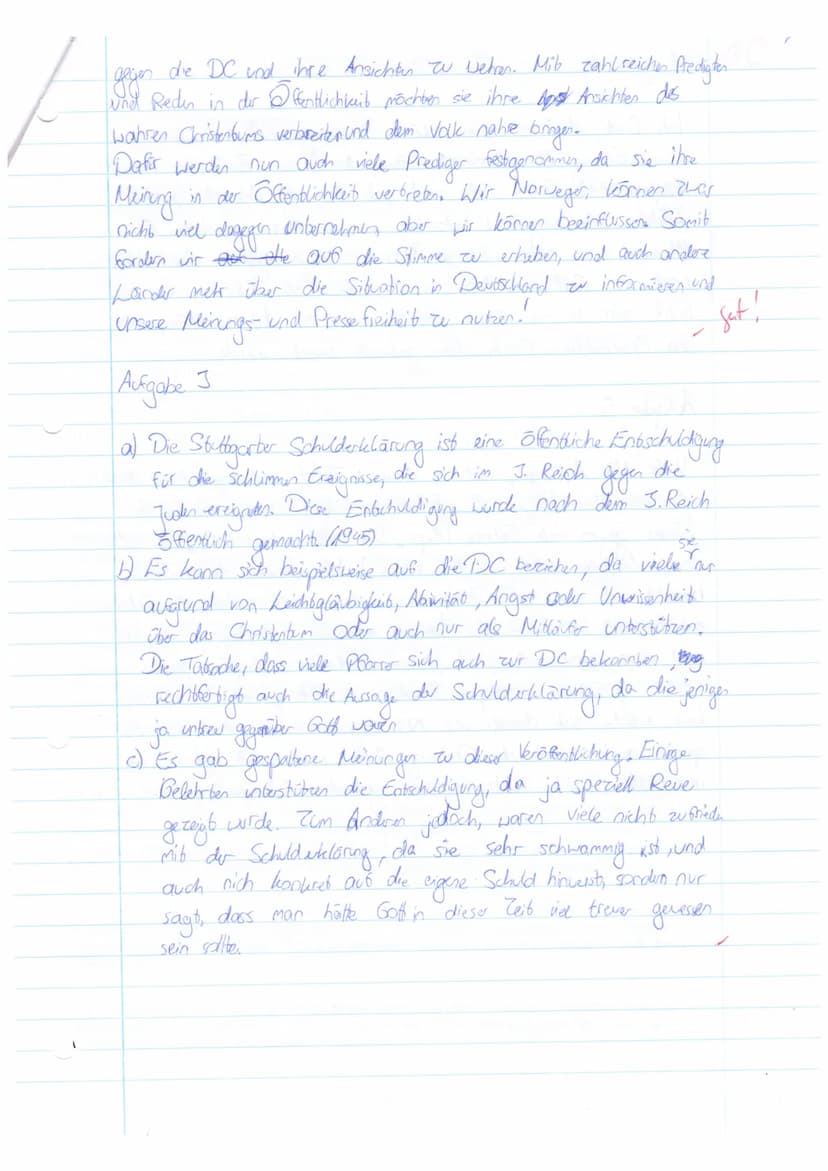 gegen die DC und ihre Ansichten zu wehren. Mit zahlreichen Predigten
und Reden in der Öffentlichkeit möchten sie ihre Ansichten des
wahren Christentums verbreiten und dem Volk nahe bringen.
Dafür werden nun auch viele Prediger festgenommen, da sie ihre
Meinung in der Öffentlichkeit vertreten. Wir Norweger, können zwar
nicht viel dagegen unternehmen, aber wir können beeinflussen. Somit
fordern wir auf die Stimme zu erheben, und auch andere
Länder mehr über die Situation in Deutschland zu informieren und
unsere Meinungs- und Pressefreiheit zu nutzen!
- gut!
Aufgabe 3
a) Die Stuttgarter Schulderklärung ist eine öffentliche Entschuldigung
für die schlimmen Ereignisse, die sich im 3. Reich gegen die
Juden ereigneten. Diese Entschuldigung wurde nach dem 3. Reich
öffentlich gemacht. (1945)
b) Es kann sich beispielsweise auf die DC beziehen, da viele sie nur
aufgrund von Leichtgläubigkeit, Naivität, Angst oder Unwissenheit
über das Christentum oder auch nur als Mitläufer unterstützen.
Die Tatsache, dass viele Pfarrer sich auch zur DC bekannten,
rechtfertigt auch die Aussage der Schulderklärung, da diejenigen
ja untreu gegenüber Gott waren
c) Es gab gespaltene Meinungen zu dieser Veröffentlichung. Einige
Gelehrten unterstützen die Entschuldigung, da ja speziell Reue
gezeigt wurde. Zum Anderen jedoch, waren viele nicht zufrieden
mit der Schulderklärung, da sie sehr schwammig ist, und
auch nich konkret auf die eigene Schuld hinweist, sondern nur
sagt, dass man hätte Gott in dieser Zeit viel treuer gewesen
sein sollte.